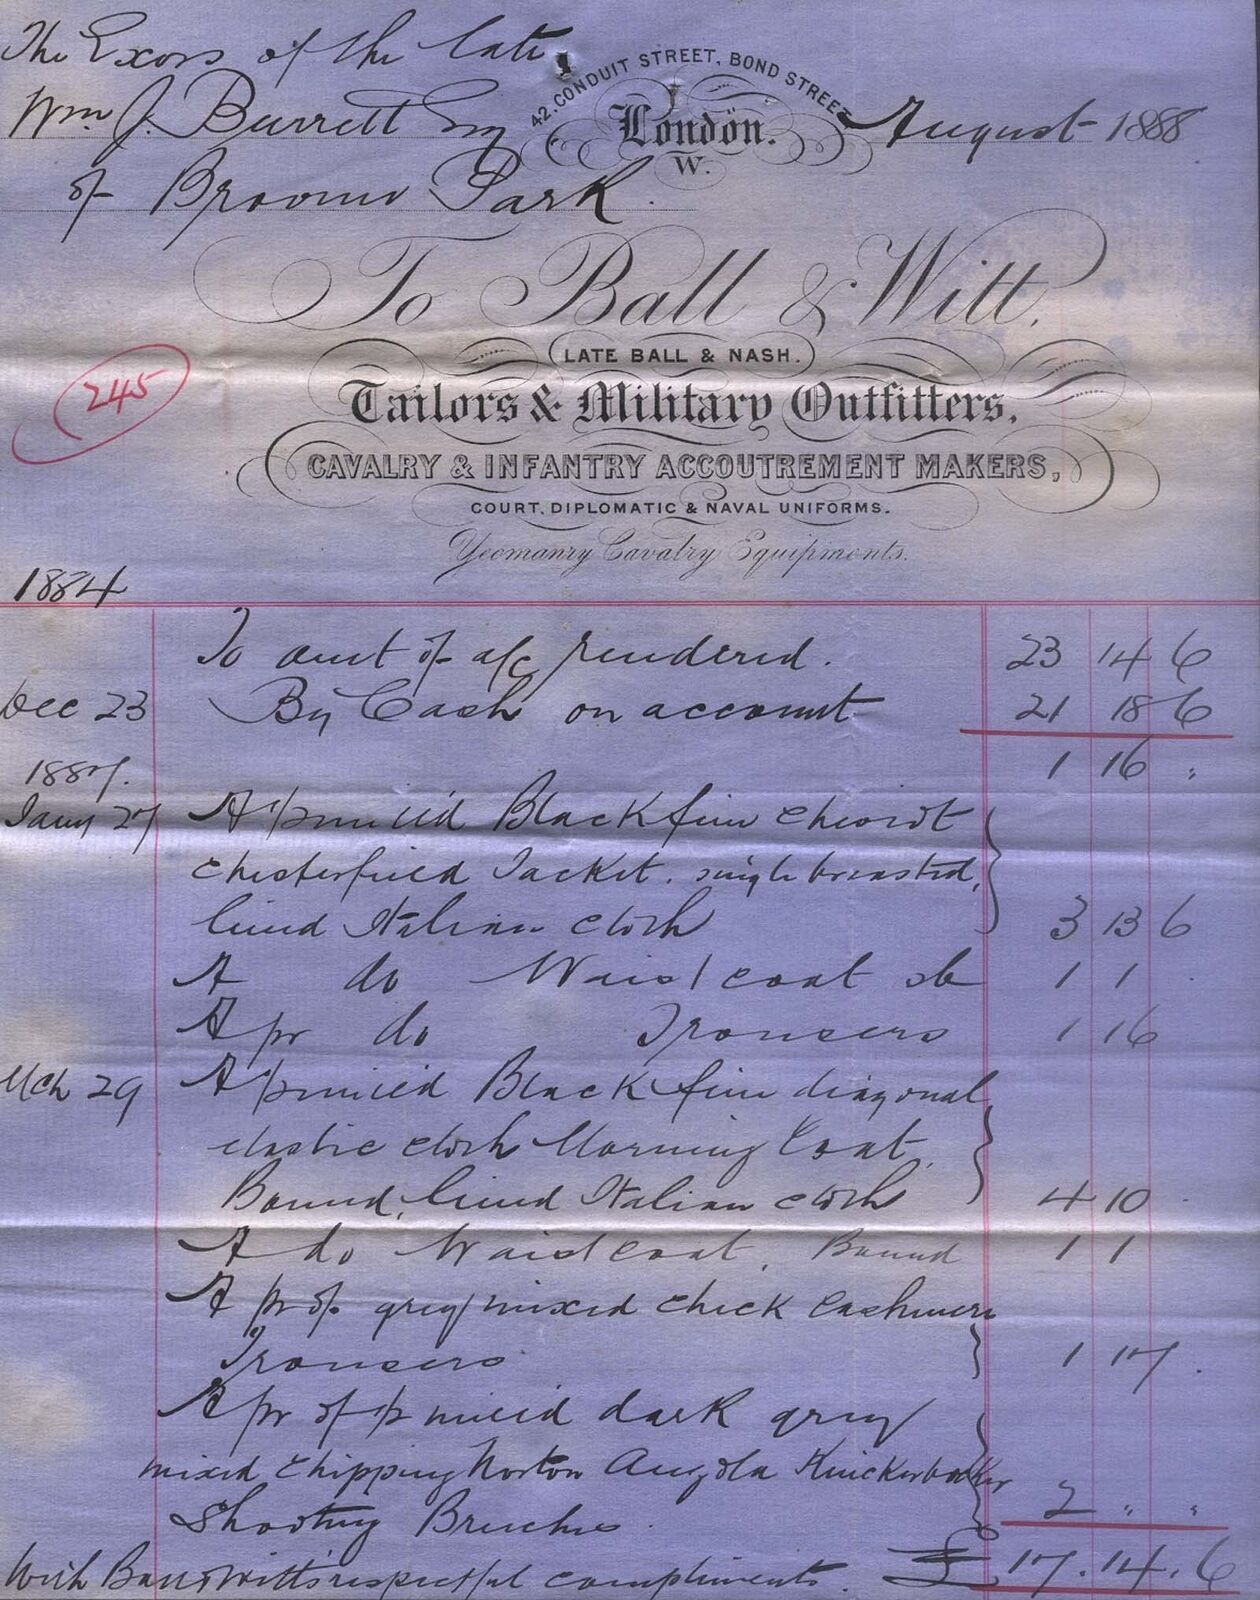 The Exors of the late
42, CONDUIT STREET, BOND STREET
Wm J. Burrett Esq London. August 1888
W.
of Broome Park.
To Ball & Witt,
LATE BALL & NASH.
245
Tailors & Military Outfitters,
CAVALRY & INFANTRY ACCOUTREMENT MAKERS,
COURT, DIPLOMATIC & NAVAL UNIFORMS.
Yeomanry Cavalry Equipments.
1884
To amt of a/c rendered. 23 14 6
Dec 23 By Cash on account 21 18 6
1 16 "
1887.
Jany 27 A Black fine cheviot
chesterfield Jacket. single breasted,
lined Italian cloth 3 13 6
A do Waistcoat sb 1 1 .
A pr do Trousers 1 16
Mch 29 A Black fine diagonal
elastic cloth Morning Coat,
Bound, lined Italian cloth 4 10 .
A do Waistcoat, Bound 1 1
A pr of grey mixed check Cashmere
Trousers 1 17 .
A pr of dark grey
mixed Chipping Norton Angola Knickerbocker
Shooting Breeches. 2 " "
With Ball & Witt's respectful compliments. £ 17 . 14 . 6